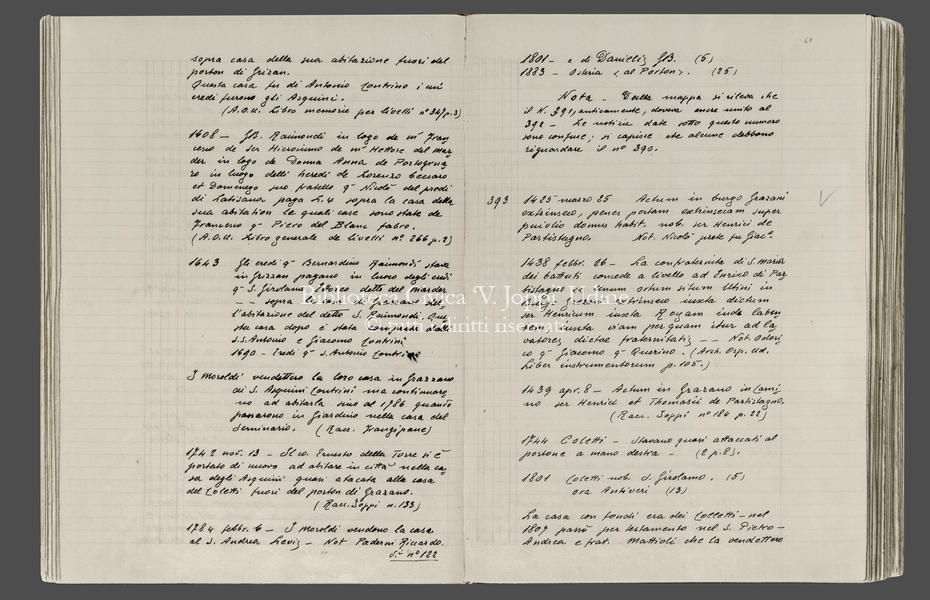 sopra casa della sua abitazione fuori del
porton di Grizan.
Questa casa fu di Antonio Contrino i cui
eredi furono gli Asquini.
(A.O.U. Libro memorie per livelli n° 347 p.3)
1608 — GB. Raimondi in logo de m° Fran
cesco de Ser Hieronimo de m° Hettore del mar
der in logo de Donna Anna de Portogrua
ro in luogo delli heredi de Lorenzo Beccaro
et Domenego suo fratello q. Nicolò del predi
di Latisana paga L.4 sopra la casa della
sua abitation le quali case sono state de
Francesco q. Piero del Blanc fabro.
(A.O.U. Libro generale de livelli n° 266 p.2)
1643 Gli eredi q. Bernardino Raimondi stava
in Grizzan pagano in luoco degli eredi
q. S. Girolamo Ettore detto del marder
— — sopra la casa di Grazano del
l'abitazione del detto S. Raimondi. Que
sta casa dopo è stata comprata dalli
S.S. Antonio e Giacomo Contrini
1690 - Eredi q. S. Antonio Contrino
I Moroldi vendettero la loro casa in Grazzano
di S. Asquini Contrini ma continuaro
no ad abitarla sino al 1786 quando
passarono in Giardino nella casa del
Seminario. (Racc. Frangipane)
1742 nov. 13 — Il co. Ernesto della Torre si è
portato di nuovo ad abitare in città nella ca
sa degli Asquini quasi atacata alla casa
del Coletti fuori del porton di Grazano.
(Racc. Joppi n. 133)
1784 febbr. 6 — I Moroldi vendono la casa
al S. Andrea Leviz — Not Paderni Riccardo.
n° 122
60
1801 - e di Danieliz GB. (5)
1883 - Osteria "al Porton". (25)
Nota - Dalla mappa si rileva che
il N. 391, anticamente, doveva essere unito al
392 - Le notizie date sotto questo numero
sono confuse; si capisce che alcune debbono
riguardare il n° 390.
393 1425 marzo 25 Actum in burgo Grazani
extrinseco, penes portam extrinsecam super
puiolio domus habit. nob. ser Henrici de
Partistagno. Not. Nicolò prete fu Giac°.
1438 febbr. 26 — La confraternita di S. Maria
dei battuti concede a livello ad Enrico di Par
tistagno unum ortum situm Utini in
burgo Grazani extrinseco iuxta dictum
ser Henricum iuxta Royam inde laben
tem iuxta viam per quam itur ad la
vatores dictae fraternitatis — Not. Odori
co q. Giacomo q. Querino. (Arch. Osp. Ud.
Liber instrumentorum p. 105.)
1439 apr. 8 — Actum in Grazano in Cami
no ser Henrici et Thomasii de Partistagno.
(Racc. Joppi n° 186 p. 22)
1744 Coletti — Stavano quasi attaccati al
portone a mano destra — (2 p.8).
1801 Coletti nob. d. Girolamo. (5)
ora Antiveri (13)
La casa con fondi era dei Colletti - nel
1807 passò per testamento nel S. Pietro -
Andrea e frat. Mattioli che la vendettero
Biblioteca Civica 'V. Joppi' Udine
© tutti i diritti riservati